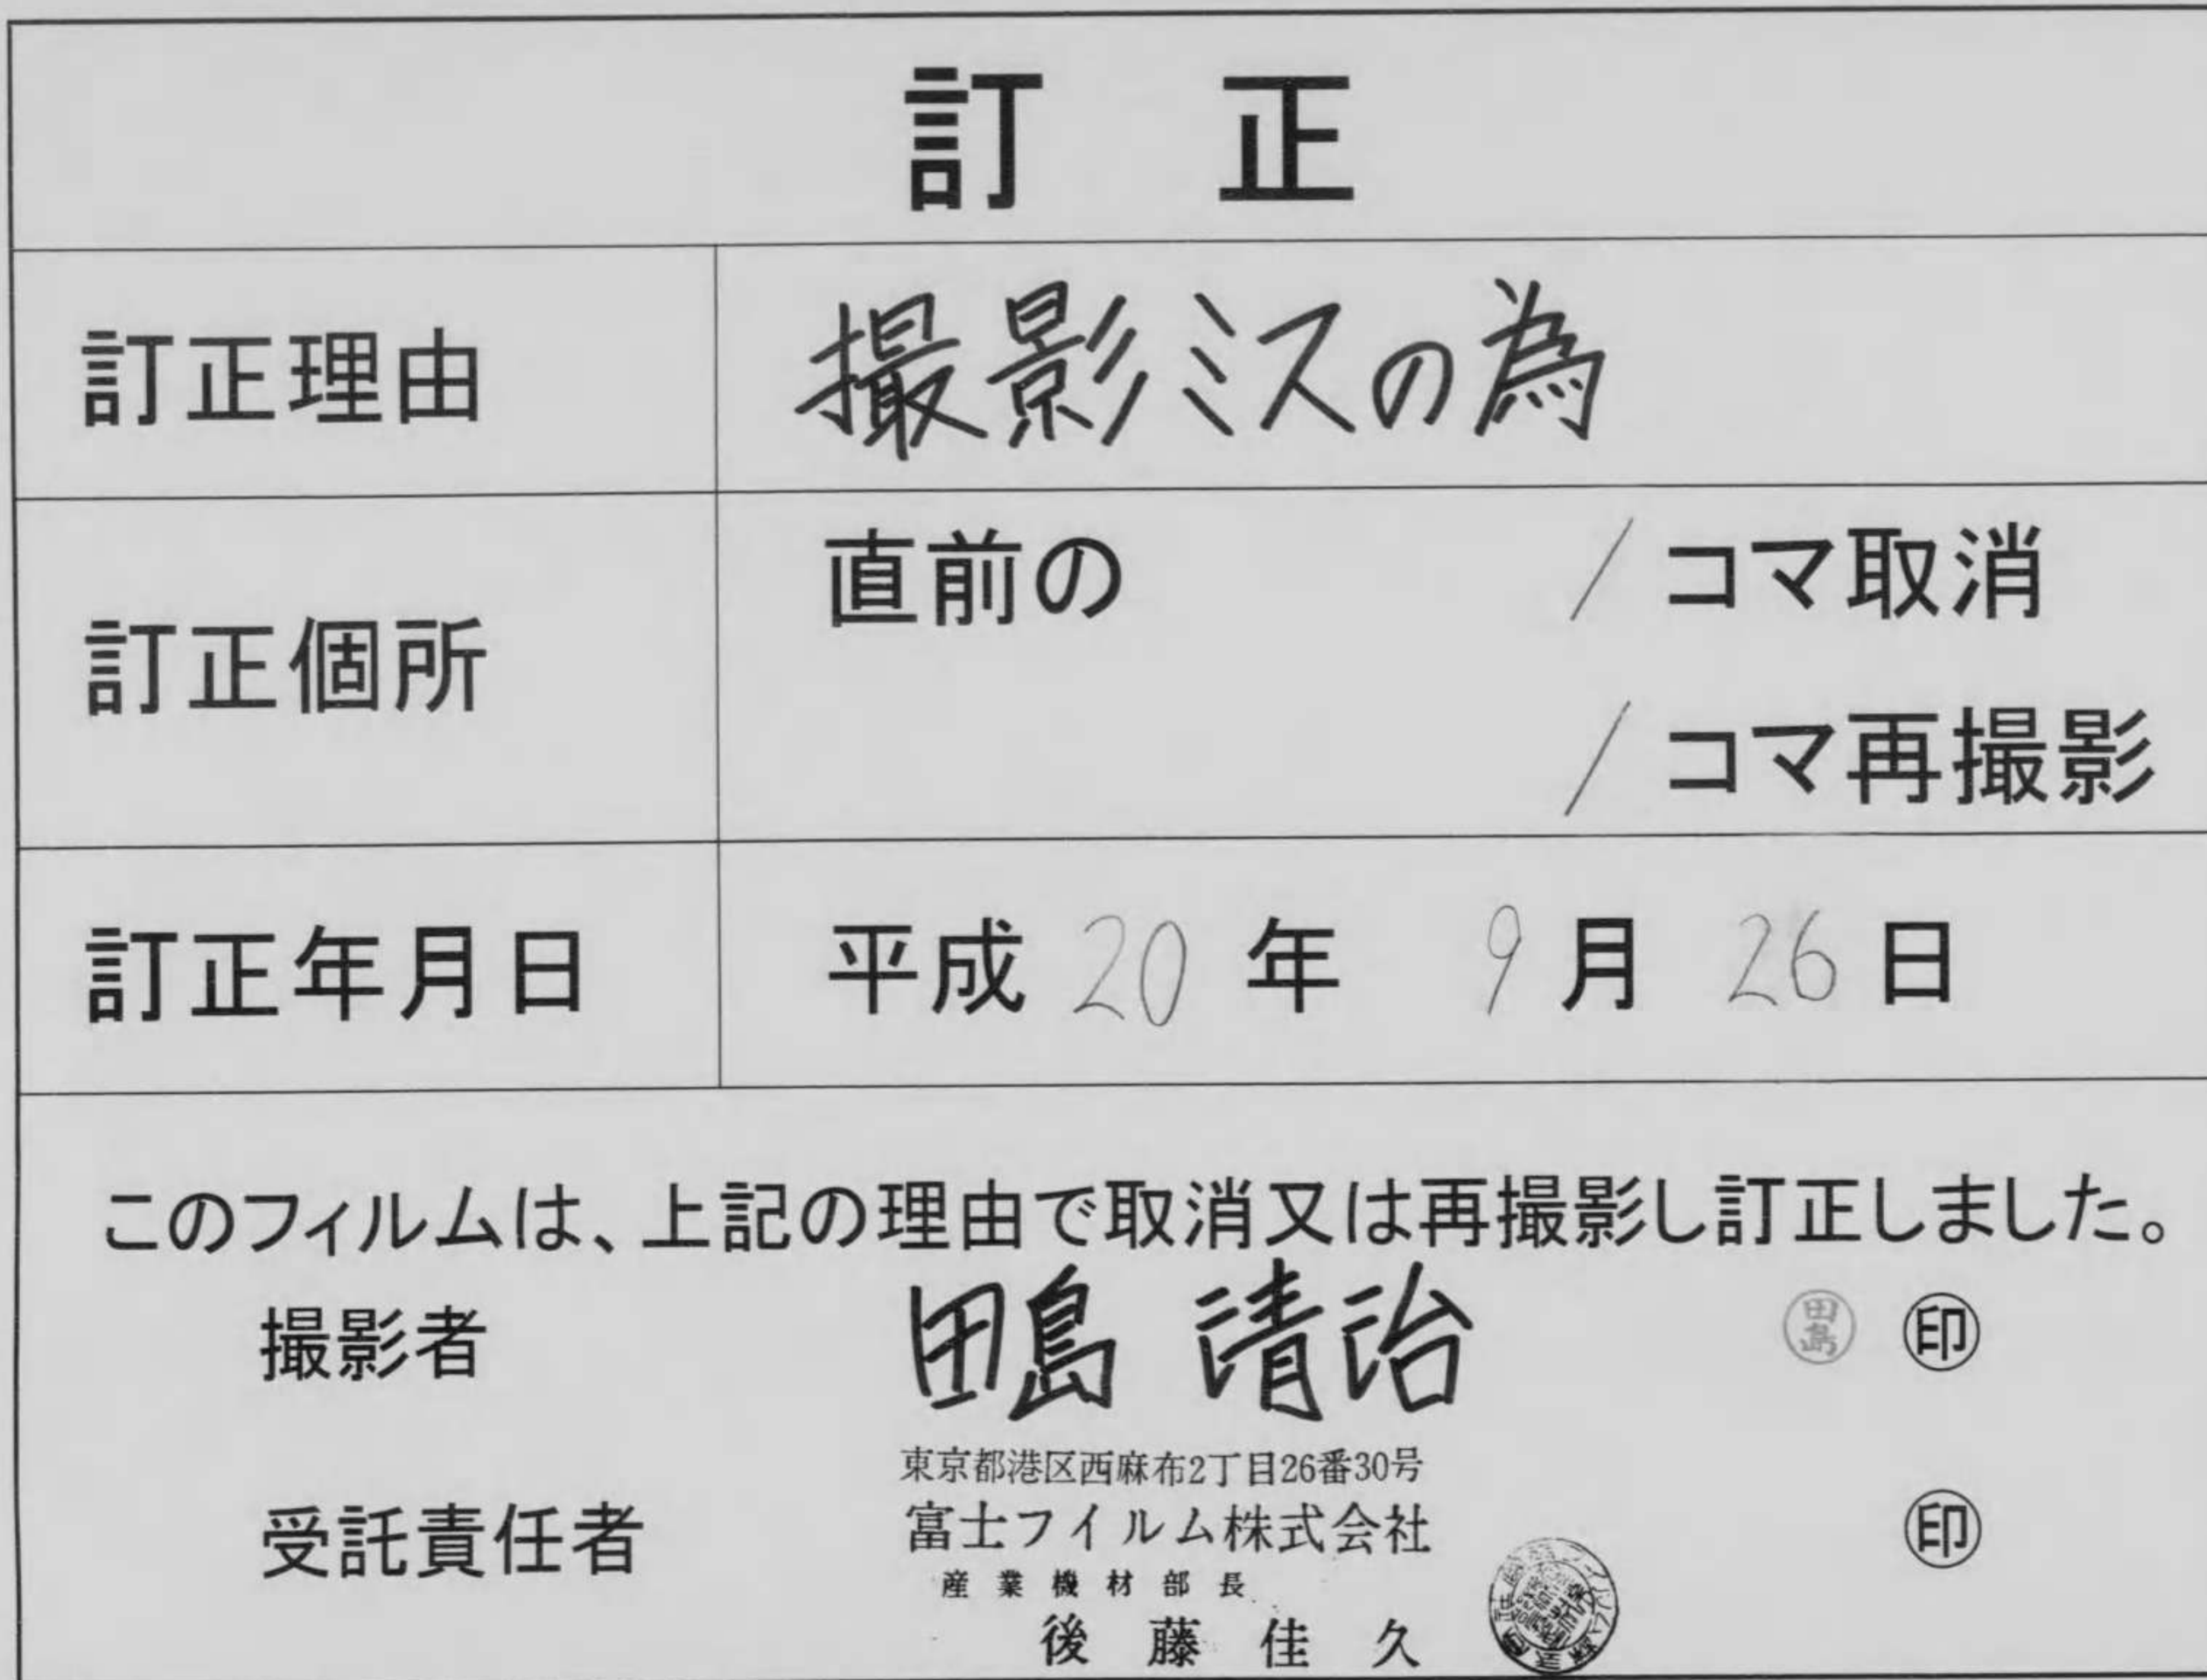 訂正
訂正理由 撮影ミスの為
訂正個所 直前の / コマ取消
/ コマ再撮影
訂正年月日 平成 20 年 9 月 26 日
このフィルムは、上記の理由で取消又は再撮影し訂正しました。
撮影者 田島 清治 田島 ㊞
東京都港区西麻布2丁目26番30号
受託責任者 富士フイルム株式会社 ㊞
産業機材部長
後藤佳久